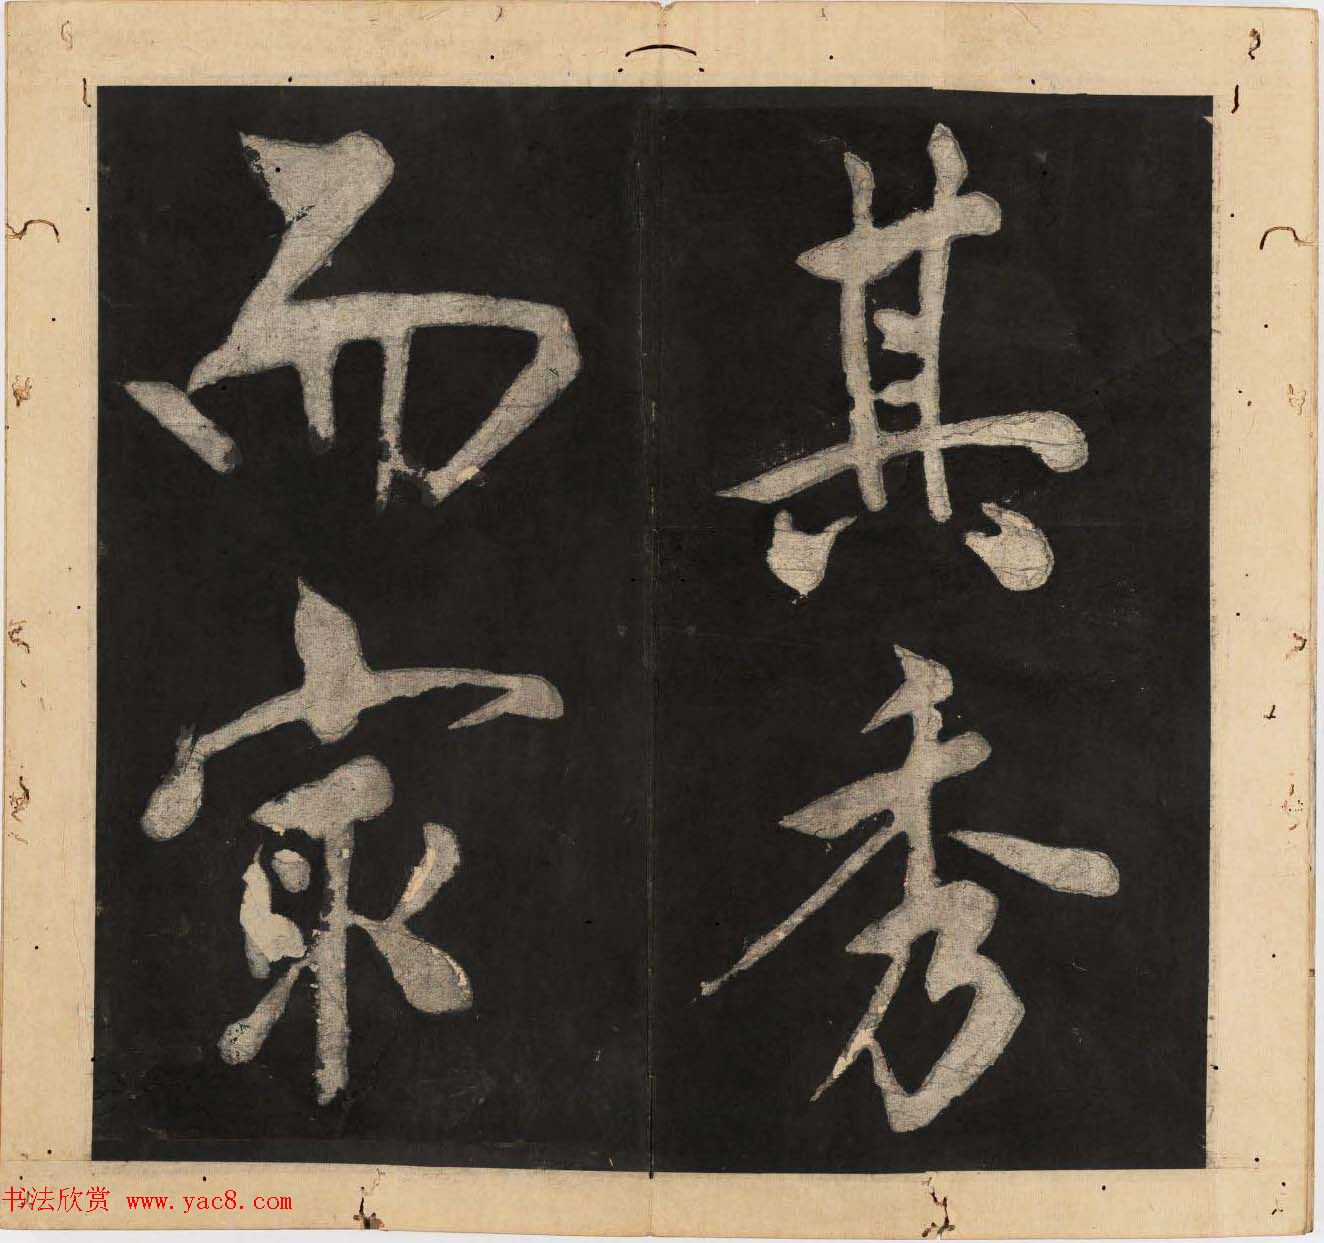 其秀
而最
书法欣赏 www.yac8.com